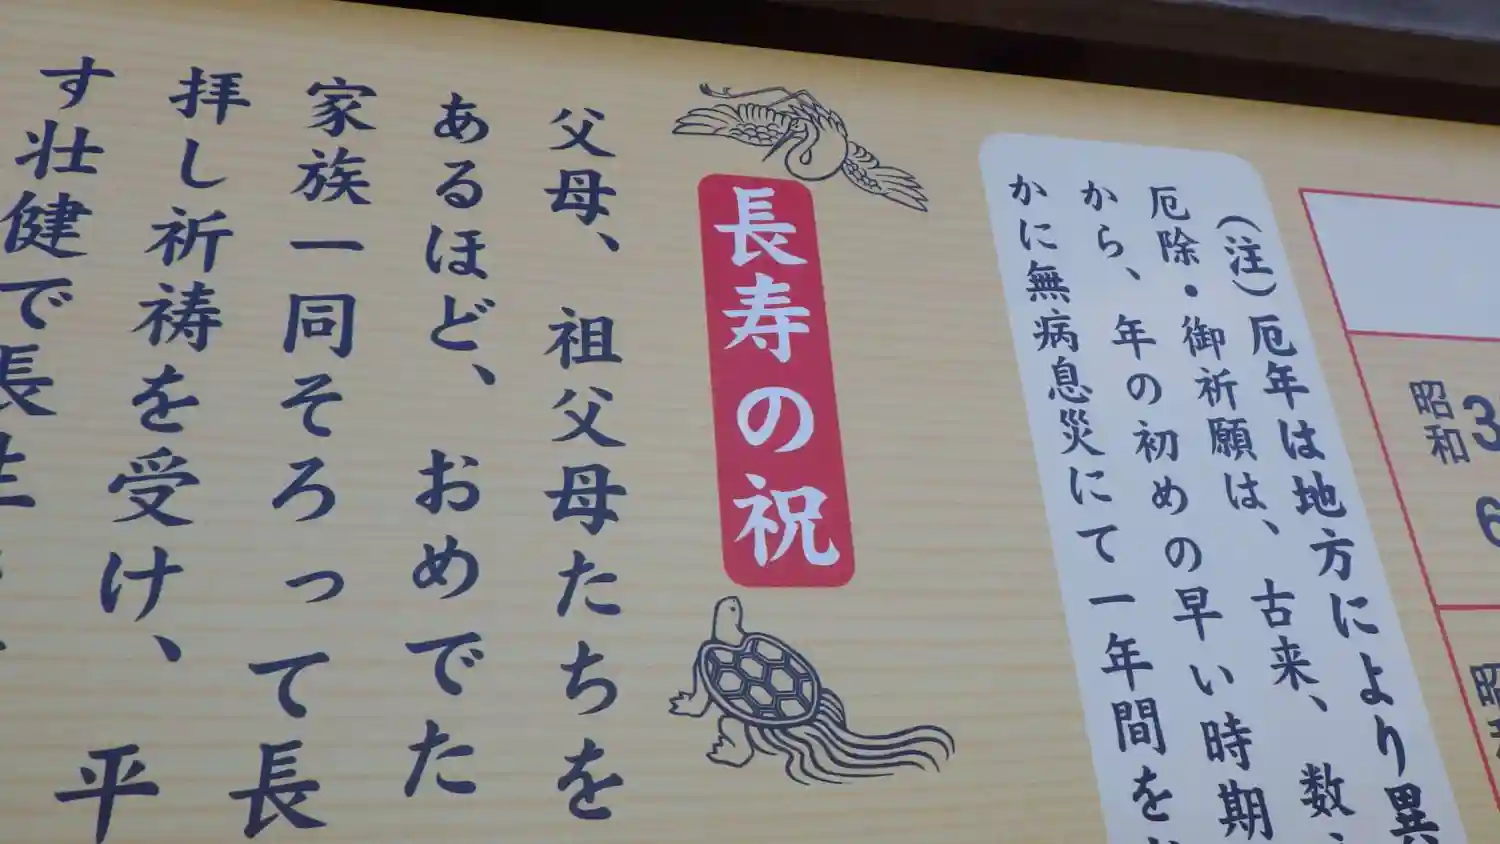 昭和 3
6
昭和
(注)厄年は地方により異
厄除・御祈願は、古来、数
から、年の初めの早い時期
かに無病息災にて一年間を
長寿の祝
父母、祖父母たちを
あるほど、おめでた
家族一同そろって長
拝し祈祷を受け、平
す壮健で長生